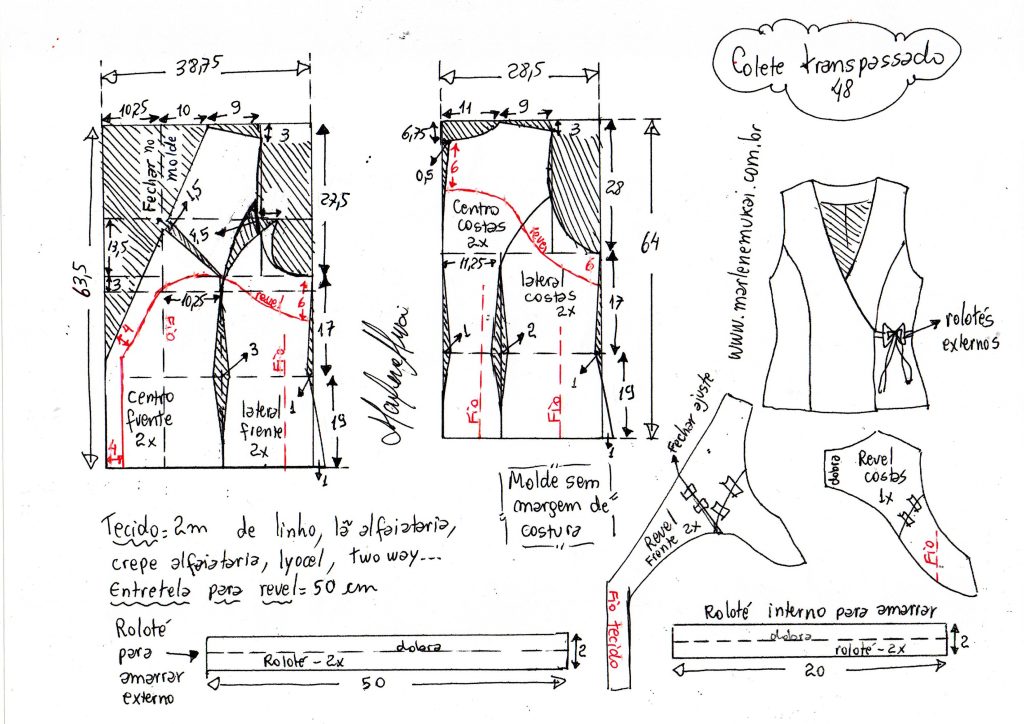 Colete transpassado
48
www.marlenemukai.com.br
38,75
10,25
10
9
3
Fechar no
molde
1,5
4,5
27,5
63,5
13,5
3
10,25
revel
6
4
Fio
17
3
Fio
1
Centro
frente
2x
lateral
frente
2x
19
4
1
28,5
11
9
6,75
3
0,5
6
28
64
Centro
costas
2x
revel
11,25
6
lateral
costas
2x
17
1
2
Fio
Fio
1
19
1
rolotés
externos
Molde sem
margem de
costura
Fechar ajuste
Revel
frente 2x
Fio tecido
dobra
Revel
costas
1x
Fio
Tecido = 2m de linho, lã alfaiataria,
crepe alfaiataria, lyocel, two way...
Entretela para revel = 50 cm
Roloté
para
amarrar
externo
dobra
Roloté - 2x
2
50
Roloté interno para amarrar
dobra
roloté - 2x
2
20